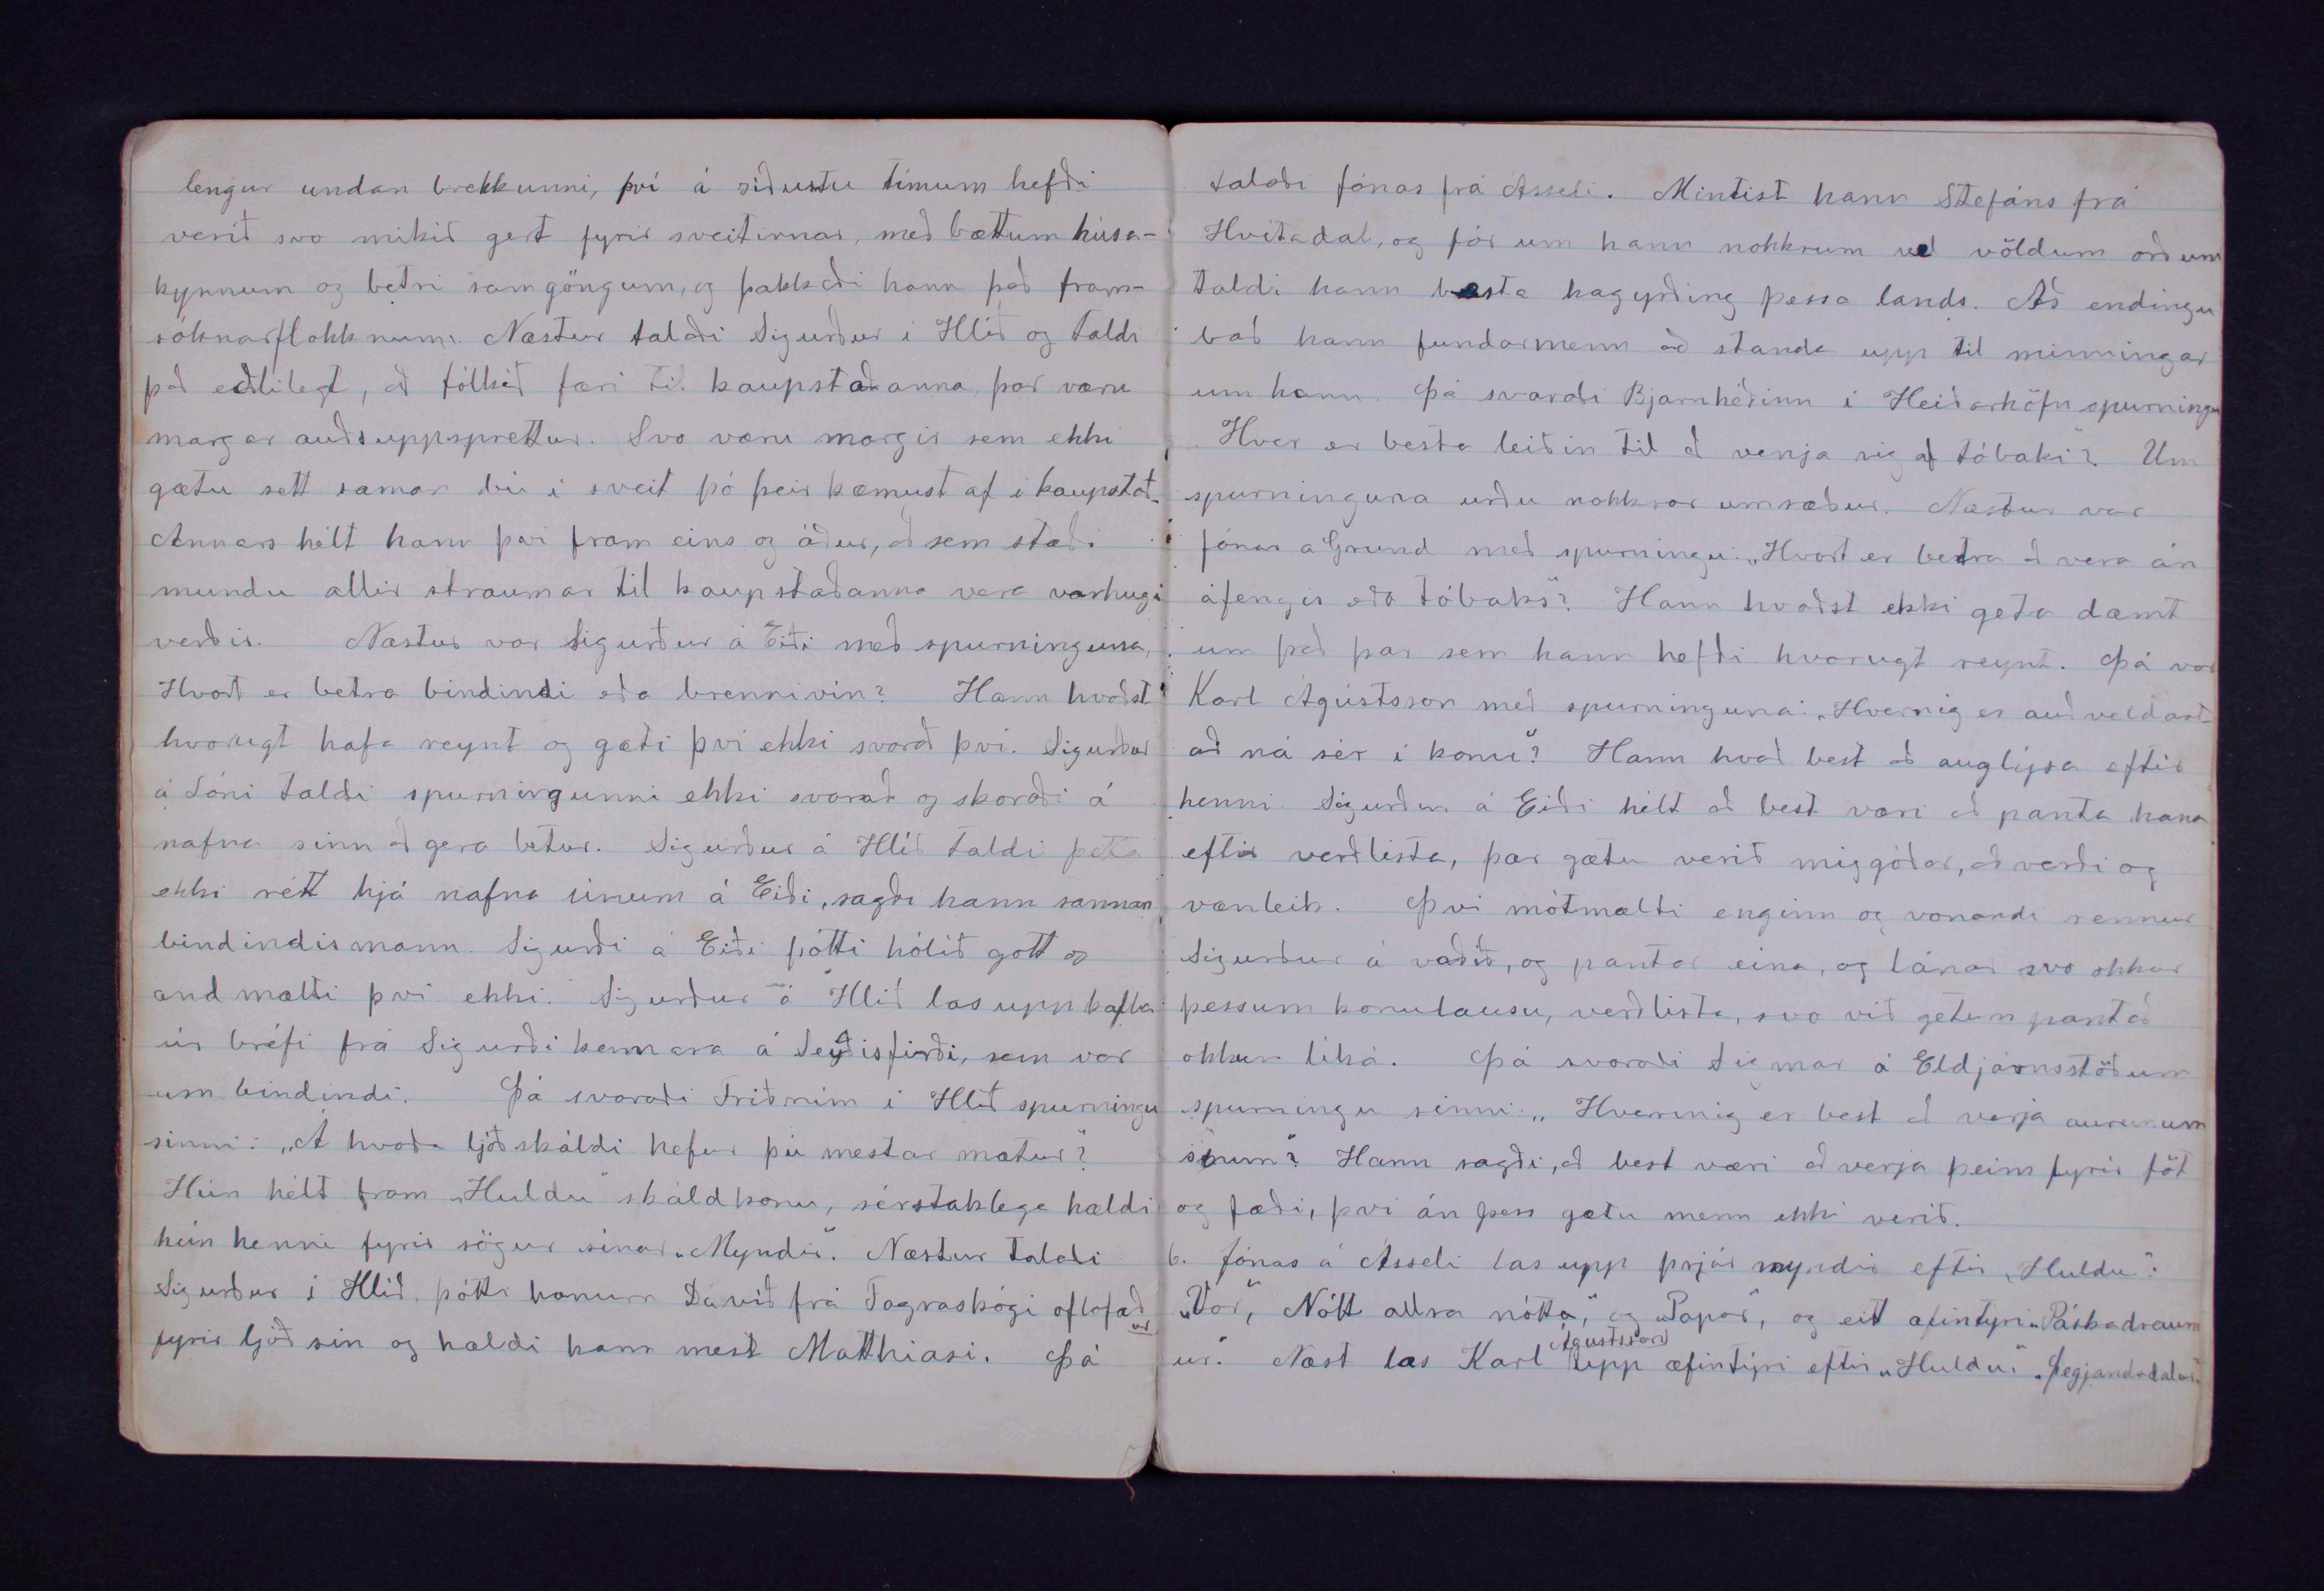 lengur undan brekkunni, því á síðustu tímum hefði
verið svo mikið gert fyrir sveitirnar, með bættum húsa-
kynnum og betri samgöngum, og þakkaði hann það fram-
sóknarflokknum. Næstur talaði Sigurður í Hlíð og taldi
það eðlilegt, að fólkið færi til kaupstaðanna þar væru
margar auðsuppsprettur. Svo væru margir sem ekki
gætu sett saman bú í sveit þó þeir kæmust af í kaupstað.
Annars hélt hann því fram eins og áður, að sem stæði
mundu allir straumar til kaupstaðanna vera varhuga
verðir. Næstur var Sigurður á Eiði með spurninguna,
Hvort er betra bindindi eða brennivín? Hann kvaðst
hvorugt hafa reynt og gæti því ekki svarað því. Sigurður
á Lóni taldi spurningunni ekki svarað og skoraði á
nafna sinn að gera betur. Sigurður á Hlíð taldi þetta
ekki rétt hjá nafna sínum á Eiði, sagði hann sannan
bindindismann. Sigurði á Eiði þótti hólið gott og
andmælti því ekki. Sigurður á Hlíð las upp kafla
úr bréfi frá Sigurði kennara á Seyðisfirði, sem var
um bindindi. Þá svaraði Friðrún í Hlíð spurningu
sinni: „Á hvaða ljóðskáldi hefur þú mestar mætur"?
Hún hélt fram „Huldu" skáldkonu, sérstaklega hældi
hún henni fyrir sögur sínar „Myndir". Næstur talaði
Sigurður í Hlíð, þótti honum Davíð frá Fagraskógi oflofað
ur
fyrir ljóð sín og hældi hann mest Matthíasi. Þá
talaði Jónas frá Asseli. Mintist hann Stefáns frá
Hvítadal, og fór um hann nokkrum vel völdum orðum
taldi hann besta hagyrðing þessa lands. Að endingu
bað hann fundarmenn að standa upp til minningar
um hann. Þá svaraði Bjarnhéðinn í Heiðarhöfn spurningu
„Hver er besta leiðin til að venja sig af tóbaki"? Um
spurninguna urðu nokkrar umræður. Næstur var
Jónas á Grund með spurningu: „Hvort er betra að vera án
áfengis eða tóbaks"? Hann kvaðst ekki geta dæmt
um það þar sem hann hefði hvorugt reynt. Þá var
Karl Ágústsson með spurninguna: „Hvernig er auðveldast
að ná sér í konu"? Hann kvað best að auglýsa eftir
henni. Sigurður á Eiði hélt að best væri að panta hana
eftir verðlista, þær gætu verið misgóðar, að verði og
vænleik. Því mótmælti enginn og vonandi rennur
Sigurður á vaðið, og pantar eina, og lánar svo okkur
þessum konulausu, verðlista, svo við getum pantað
okkur líka. Þá svaraði Sigmar á Eldjárnsstöðum
spurningu sinni: „Hvernig er best að verja aurunum
sínum"? Hann sagði, að best væri að verja þeim fyrir föt
og fæði, því án þess gætu menn ekki verið.
6. Jónas á Ásseli las upp þrjár myndir eftir „Huldu":
„Vor", Nótt allra nótta," og „Papar", og eit æfintýri „Páskadraum
Ágústsson
ur". Næst las Karl upp æfintýri eftir „Huldu" „Þegjandadalur".